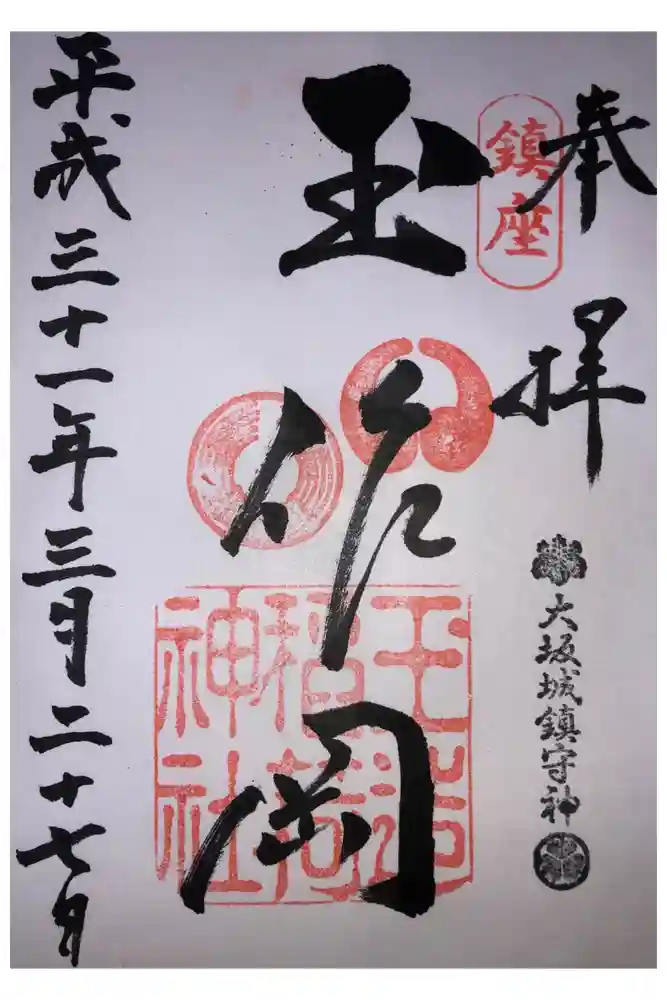 奉拝
大坂城鎮守神
鎮座
玉作岡
玉造
稲荷
神社
平成三十一年三月二十七日